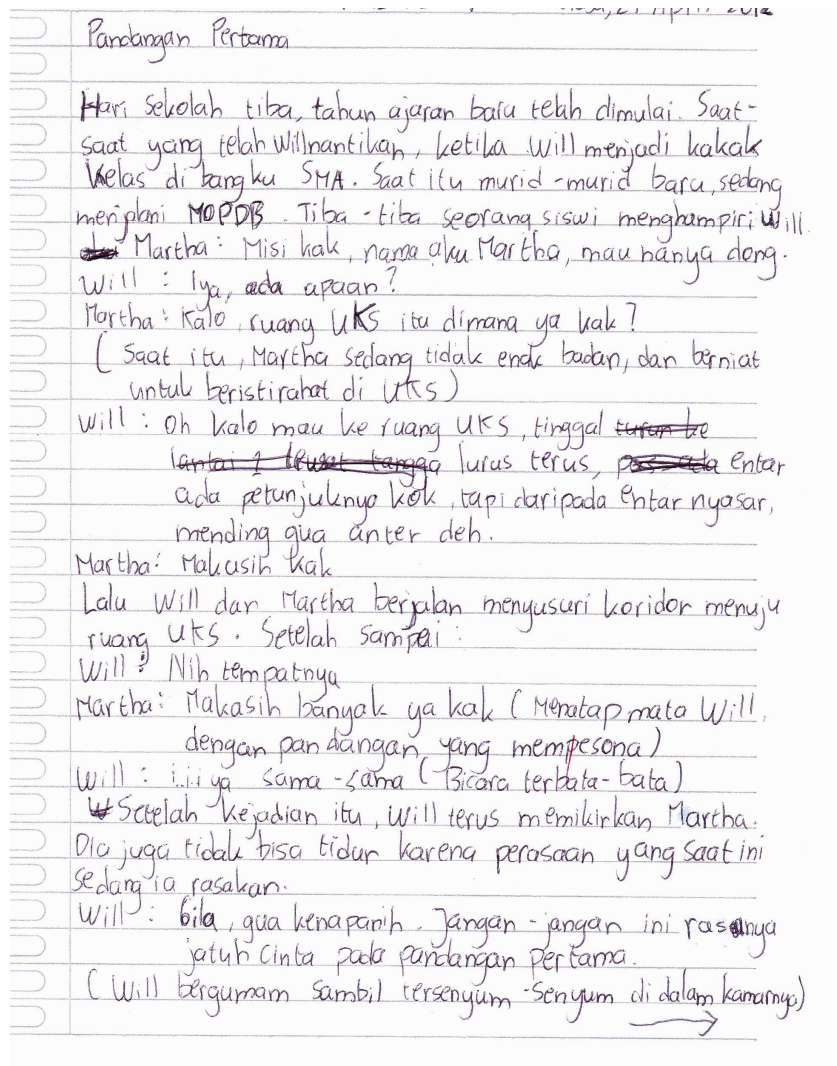 21 April 2012
Pandangan Pertama
Hari Sekolah tiba, tahun ajaran baru telah dimulai. Saat-
saat yang telah Will nantikan, ketika Will menjadi kakak
kelas di bangku SMA. Saat itu murid-murid baru, sedang
menjalani MOPDB. Tiba-tiba seorang siswi menghampiri Will.
Martha: Misi kak, nama aku Martha, mau nanya dong.
Will : Iya, ada apaan?
Martha: Kalo ruang UKS itu dimana ya kak?
( Saat itu, Martha sedang tidak enak badan, dan berniat
untuk beristirahat di UKS)
Will : Oh kalo mau ke ruang UKS, tinggal turun ke
lantai 1 lewat tangga lurus terus, pas ada entar
ada petunjuknya kok, tapi daripada entar nyasar,
mending gua anter deh.
Martha: Makasih kak
Lalu Will dan Martha berjalan menyusuri koridor menuju
ruang UKS. Setelah sampai :
Will : Nih tempatnya
Martha: Makasih banyak ya kak ( Menatap mata Will
dengan pandangan yang mempesona)
Will : i..i..iya sama-sama ( Bicara terbata-bata)
Setelah kejadian itu, Will terus memikirkan Martha.
Dia juga tidak bisa tidur karena perasaan yang saat ini
sedang ia rasakan.
Will : bila, gua kenapa nih. Jangan-jangan ini rasanya
jatuh cinta pada pandangan pertama.
( Will bergumam sambil tersenyum-senyum di dalam kamarnya)